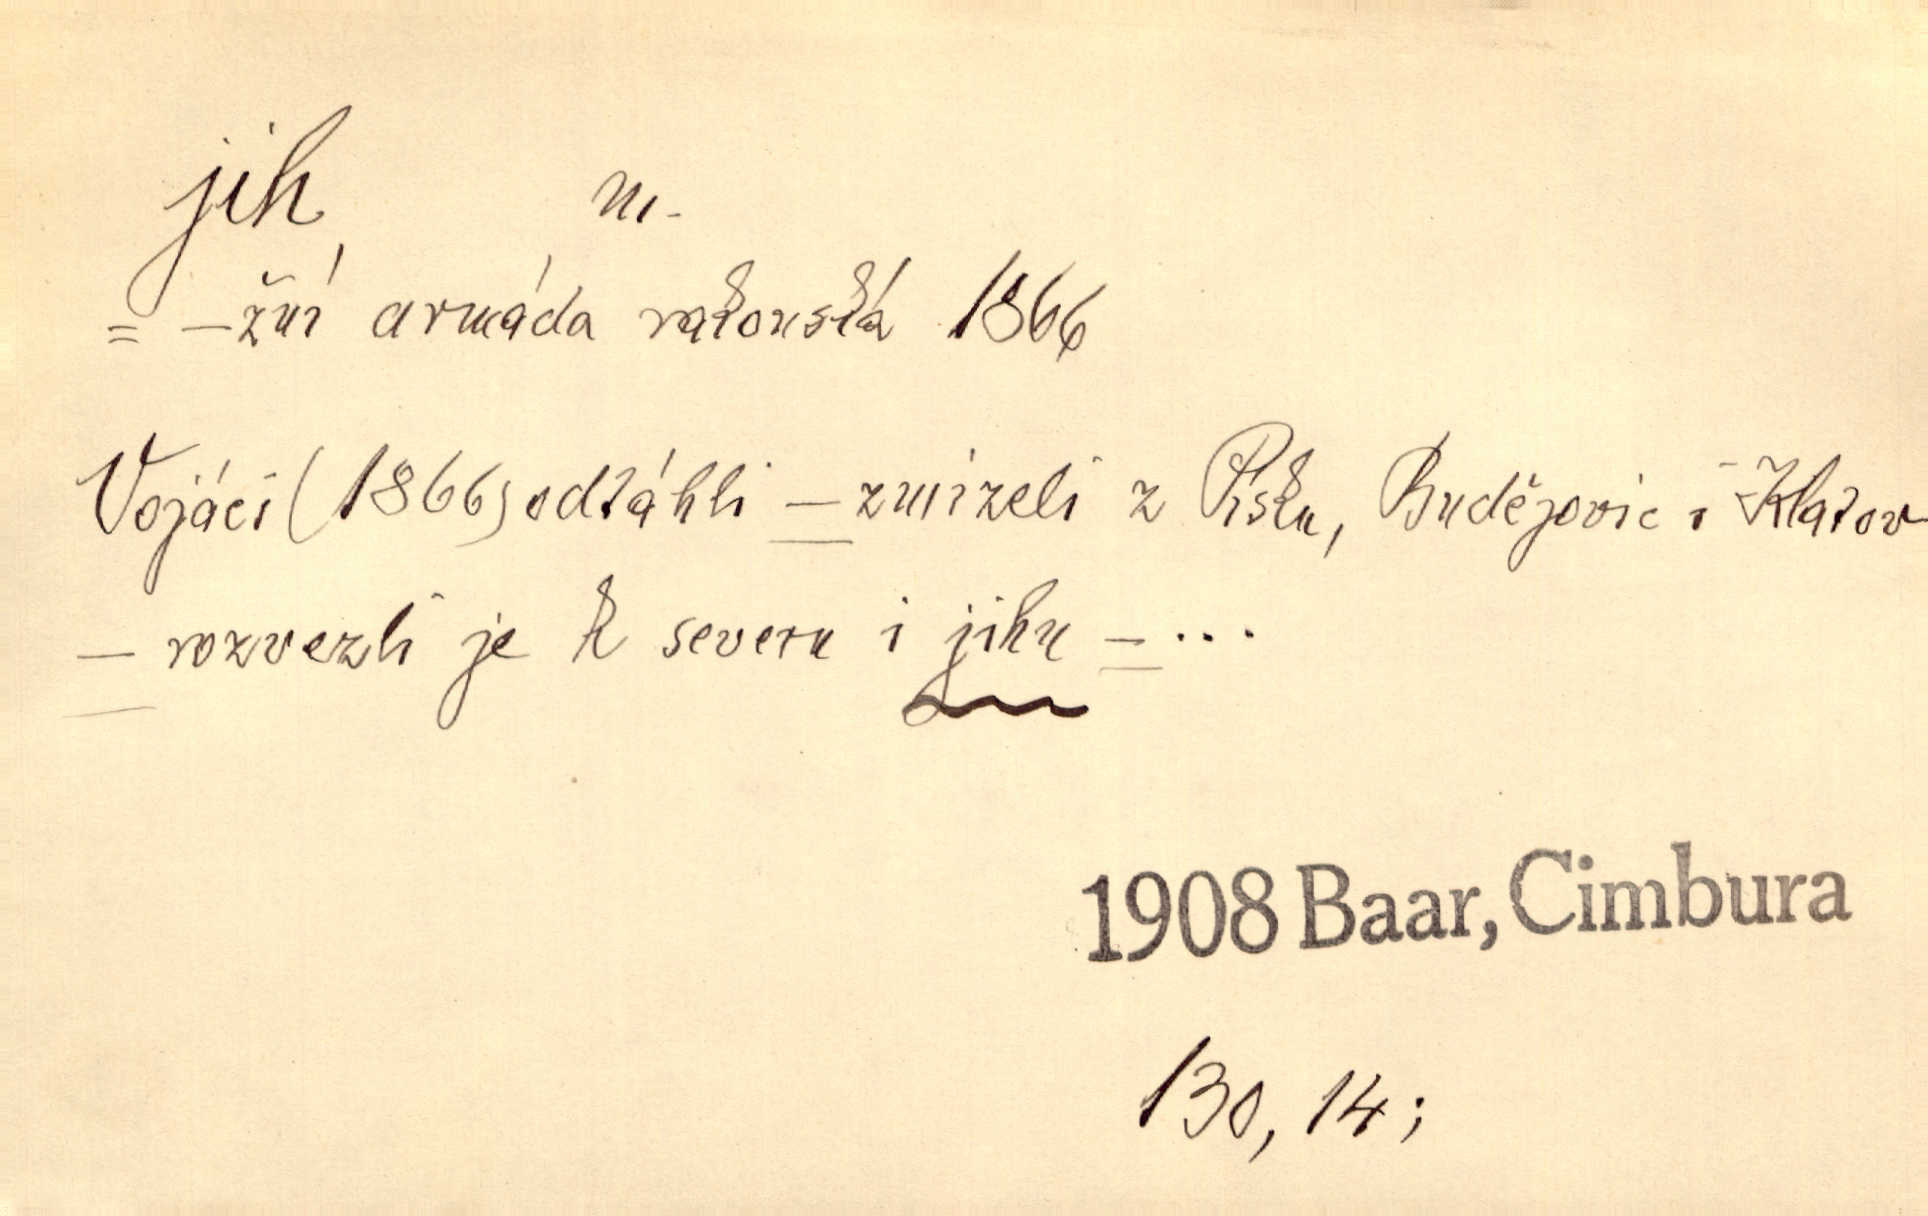 jih m.
= –žní armáda rakouská 1866
Vojáci (1866) odtáhli – zmizeli z Písku, Budějovic i Klatov
– rozvezli je k severu i jihu – ...
1908 Baar, Cimbura
130, 14;